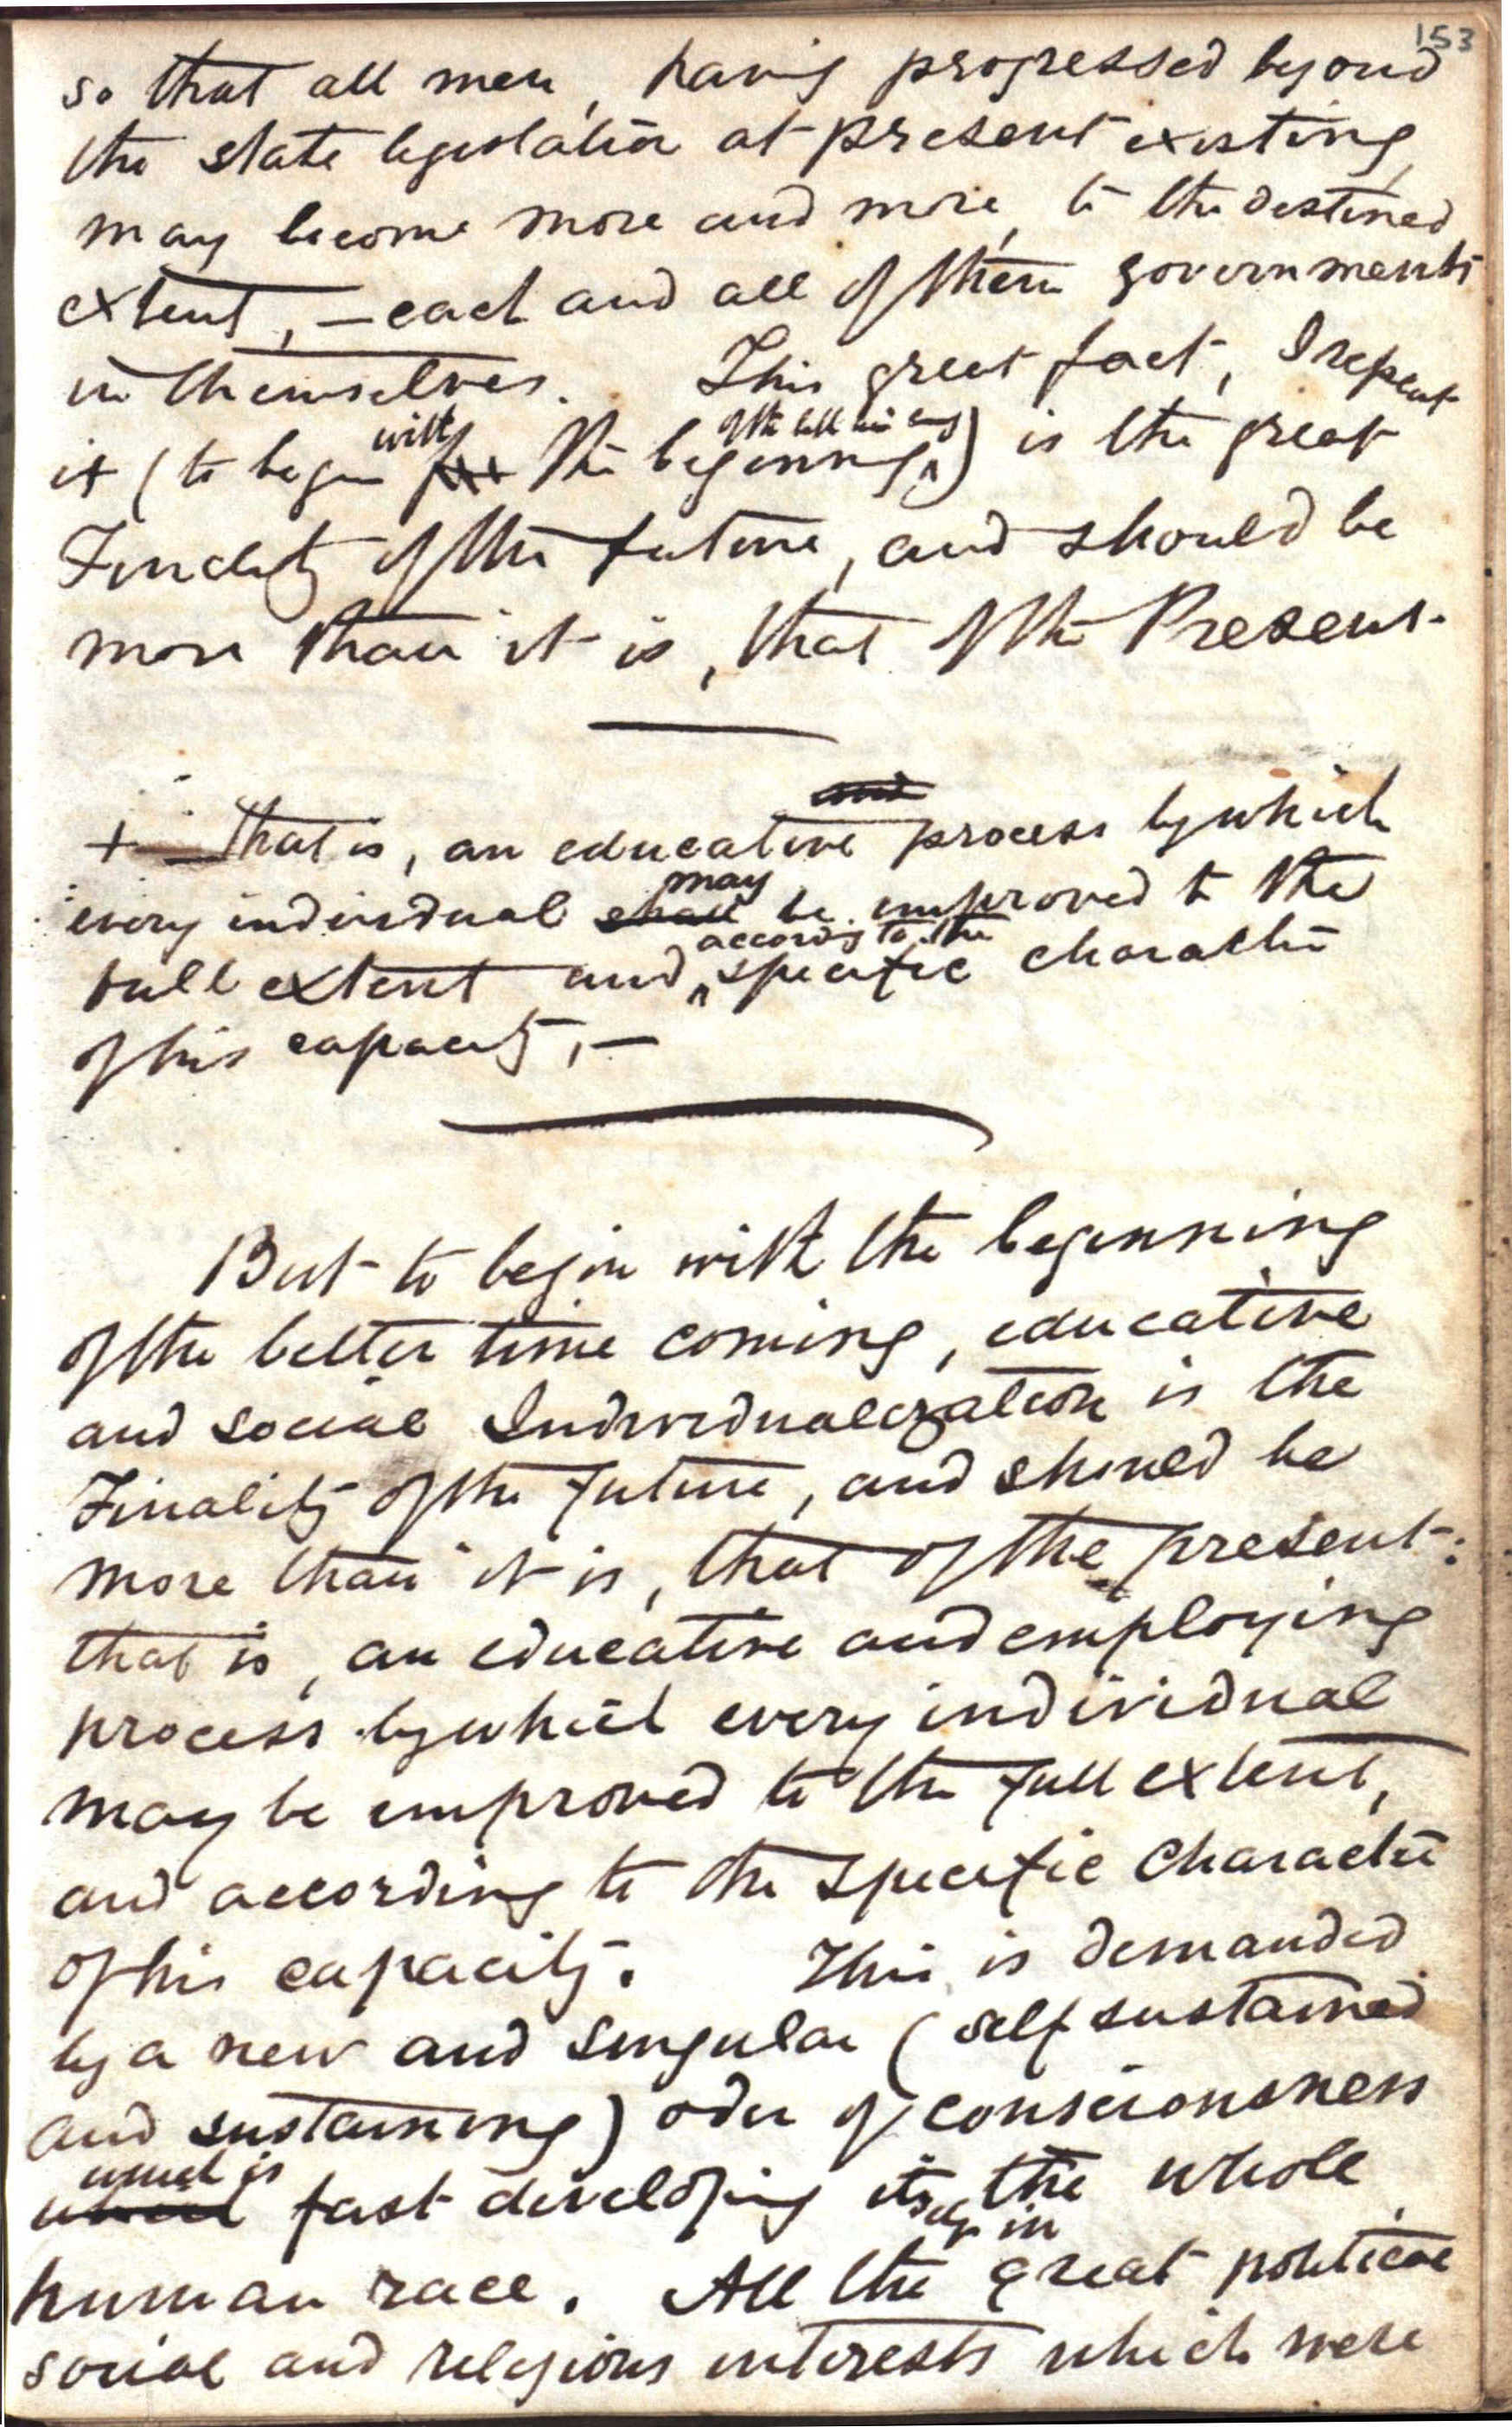 153
so that all men, having progressed beyond
the state legislation at present existing,
may become more and more, to the destined
extent, — each and all of them governments
in themselves. This great fact, I repeat
it (to begin with the beginning of the better time coming) is the great
Finality of the future, and should be
more than it is, that of the Present.
+ — That is, an educative process by which
every individual shall may be improved to the
full extent and according to the specific character
of his capacity, —
But to begin with the beginning
of the better time coming, educative
and social Individualization is the
Finality of the future, and should be
more than it is, that of the present:
that is, an educative and employing
process by which every individual
may be improved to the full extent,
and according to the specific character
of his capacity. This is demanded
by a new and singular (self sustained
and sustaining) oder of consciousness
which is fast developing itself in the whole
human race. All the great political
social and religious interests which were